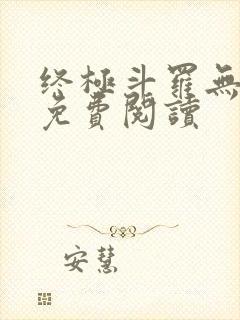 终極斗羅無
免費閱讀
安慧